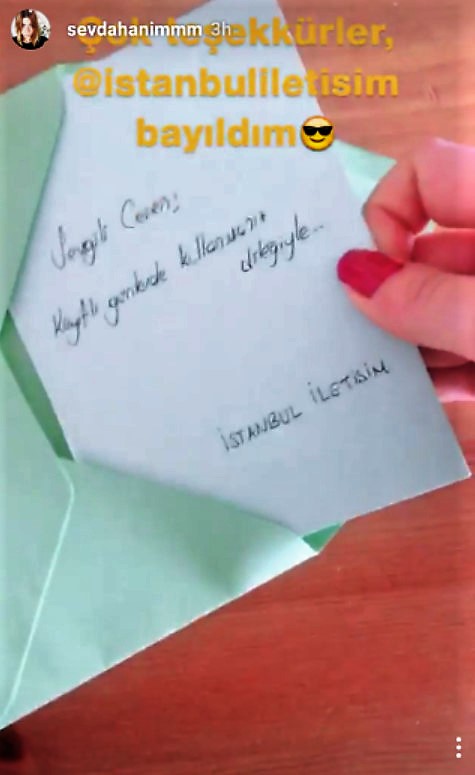 sevdahanimmm 3h
Çok teşekkürler,
@istanbuliletisim
bayıldım😎
Sevgili Ceren;
Keyifli günlerde kullanmanız
dileğiyle...
İSTANBUL İLETİSİM